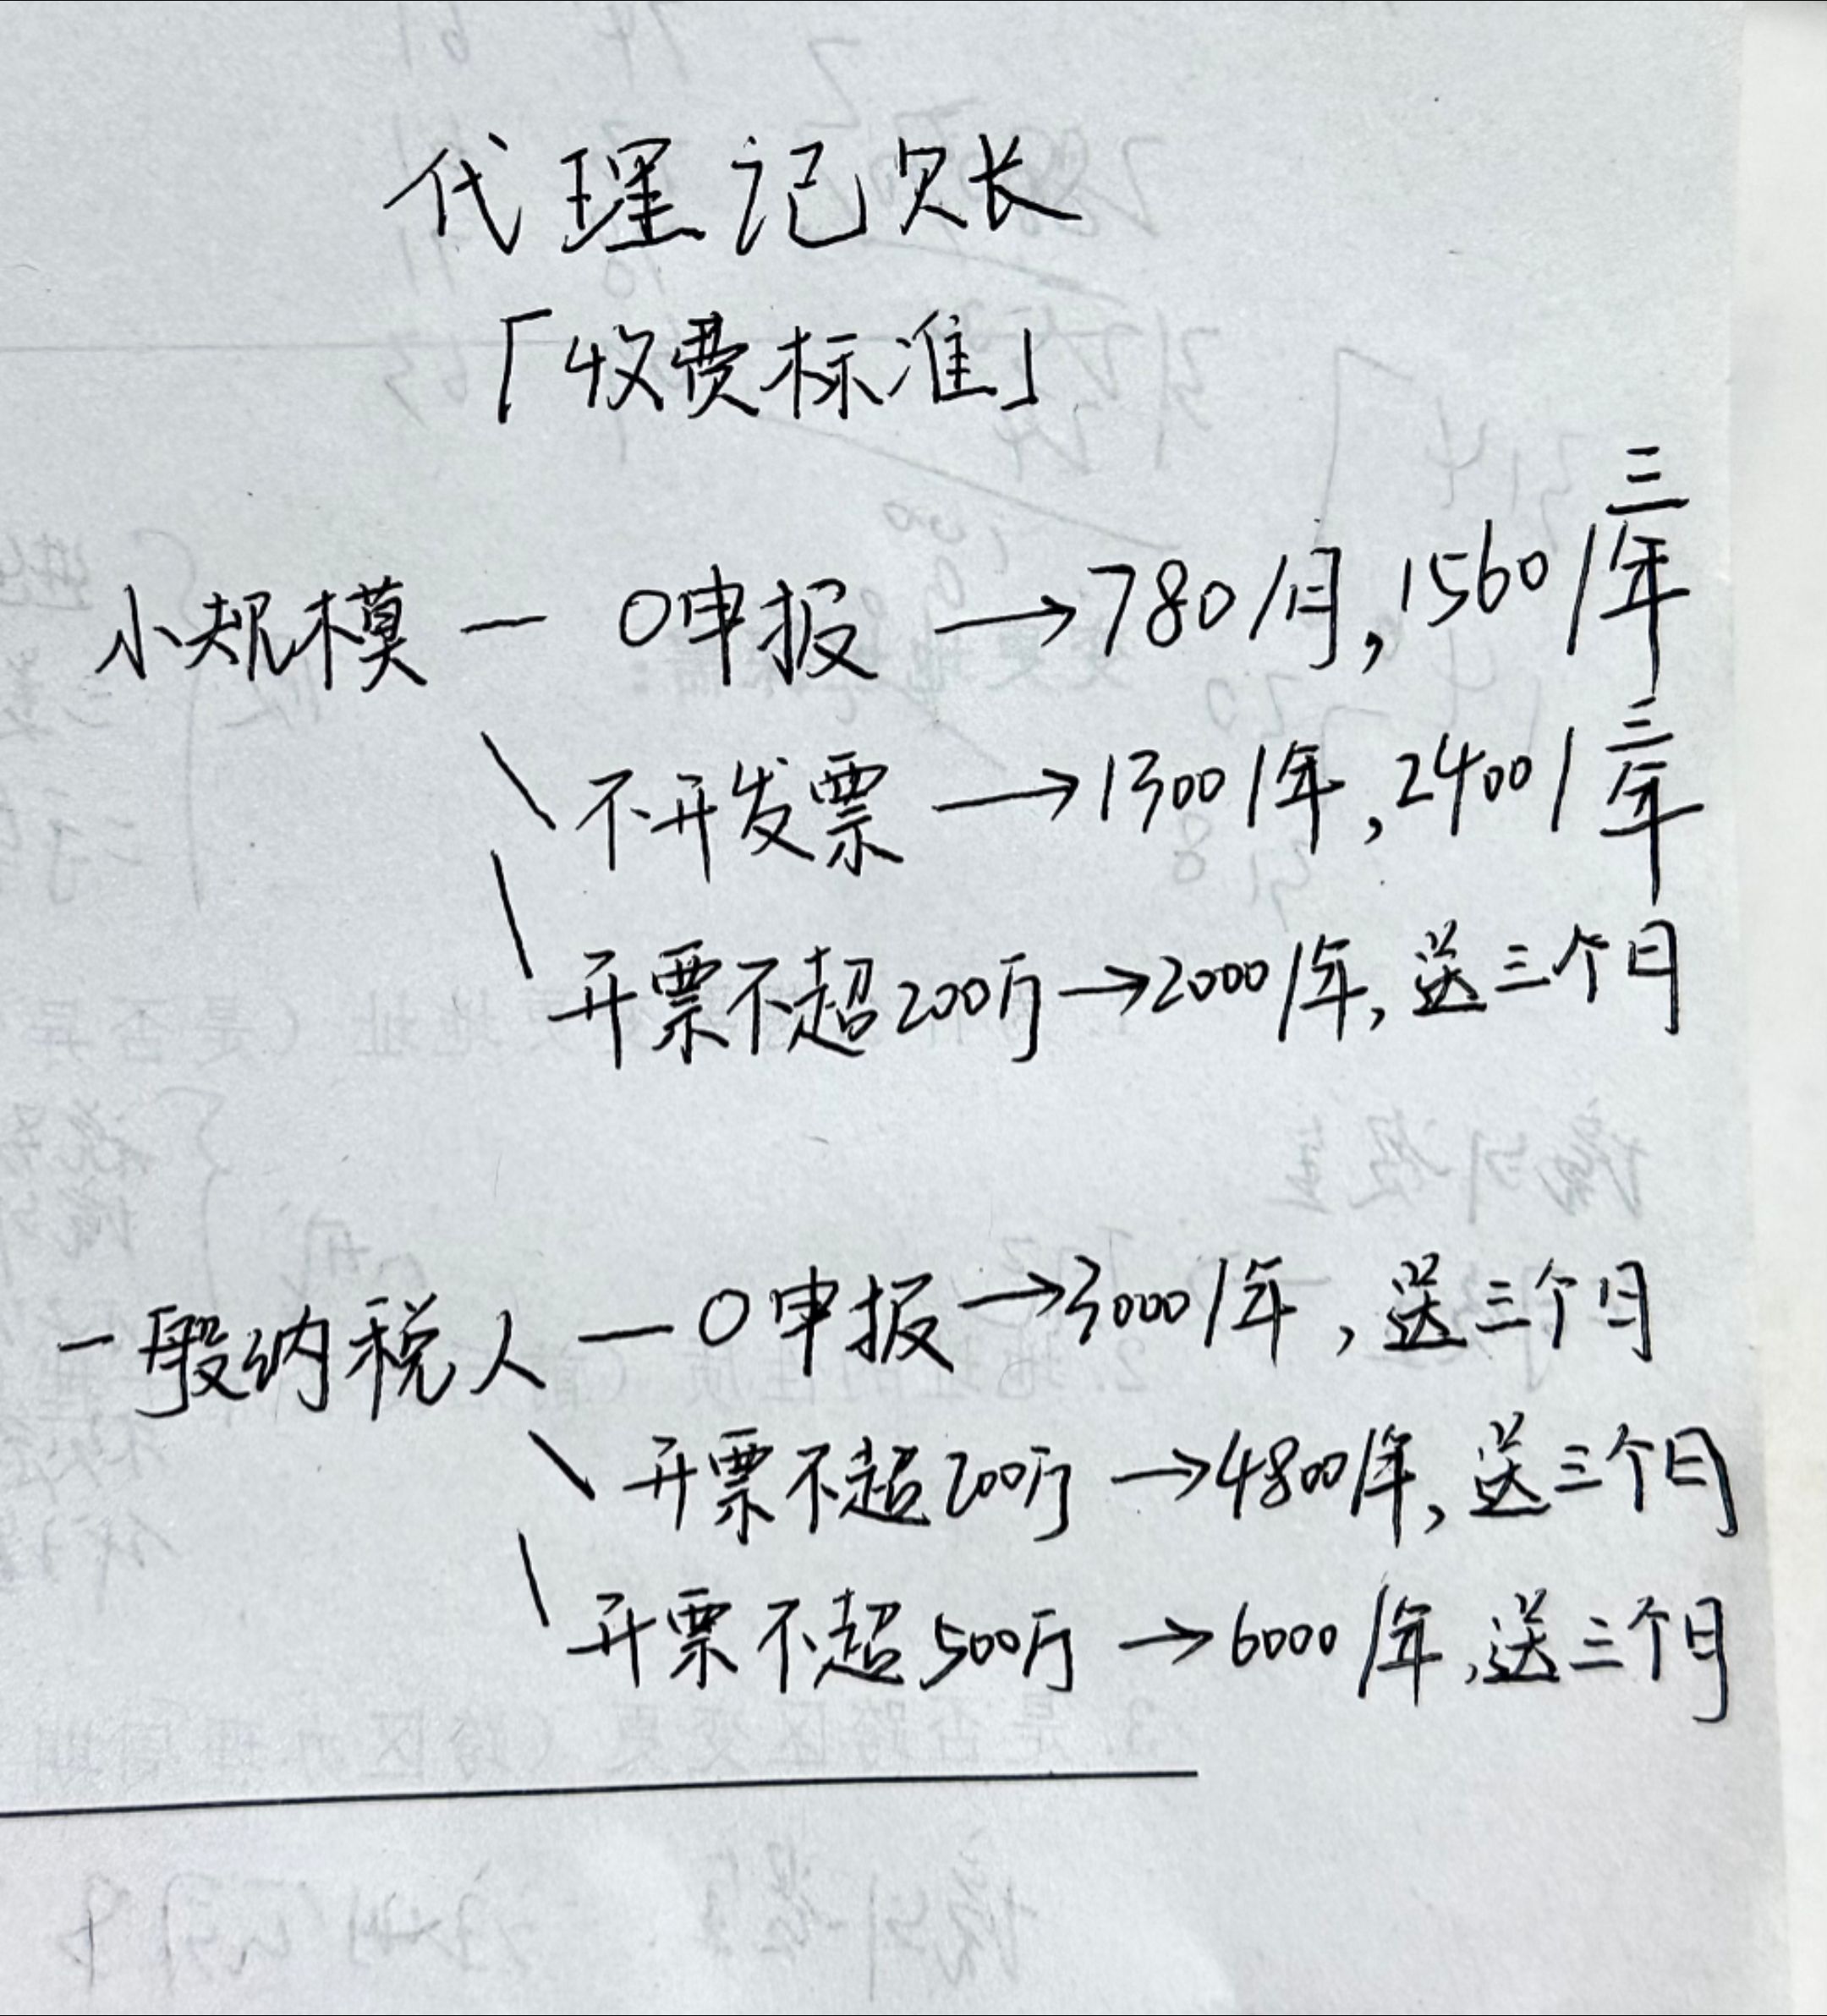 代理记账
「收费标准」
小规模 — 0申报 → 780/月, 1560/三年
不开发票 → 1300/年, 2400/三年
开票不超200万 → 2000/年, 送三个月
一般纳税人 — 0申报 → 3000/年, 送三个月
开票不超200万 → 4800/年, 送三个月
开票不超500万 → 6000/年, 送三个月